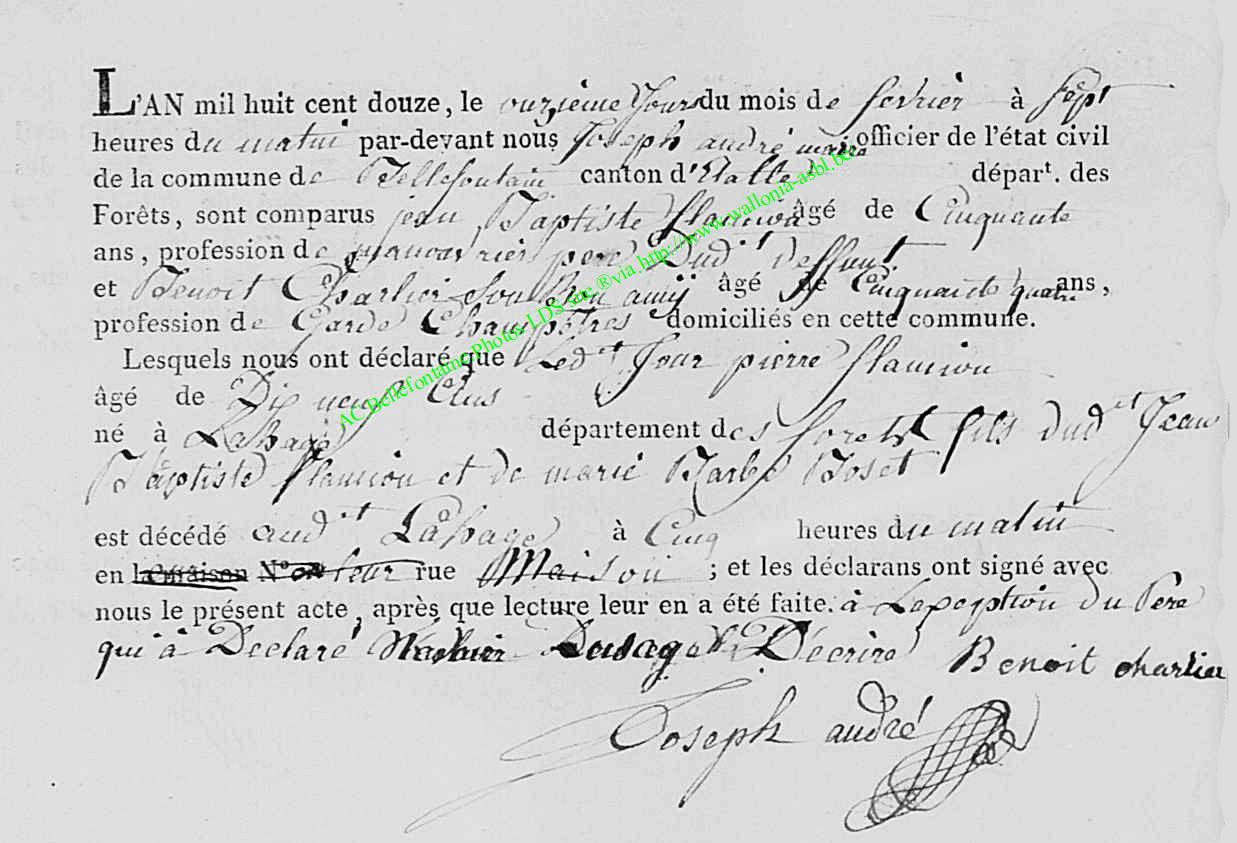 L'AN mil huit cent douze, le onzieme Jour du mois de fevrier à sept
heures du matin par-devant nous Joseph andré maire officier de l'état civil
de la commune de Bellefontain canton d'Etalle départ. des
Forêts, sont comparus jean Baptiste flamion âgé de Cinquante
ans, profession de manouvrier pere Dud.t deffunt
et Benoit Charlier Son Bon amij âgé de Cinquante quatre ans,
profession de Garde Champêtres domiciliés en cette commune.
Lesquels nous ont déclaré que Led.t Jour pierre flamion
âgé de Dix neuf Ans
né à Lahage département des forets fils dud.t Jean
Baptiste flamion et de marie Barbe Boset
est décédé aud.t Lahage à Cinq heures du matin
en la maison N° leur rue Maison ; et les déclarans ont signé avec
nous le présent acte, après que lecture leur en a été faite. à Lexeption du Pere
qui à Declaré Navoir Lusage Décrire Benoit charlier
Joseph andré
AC Bellefontaine Photos LDS inc.®via http://www.wallonia-asbl.be/